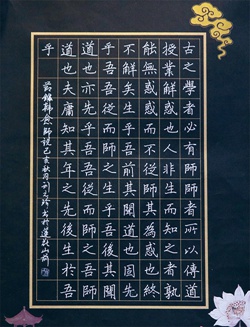 古之學者必有師師者所以傳道
授業解惑也人非生而知之者孰
能無惑惑而不從師其為惑也終
不解矣生乎吾前其聞道也固先
乎吾吾從而師之生乎吾後其聞
道也亦先乎吾吾從而師之吾師
道也夫庸知其年之先後生於吾
乎
節錄韓愈師說己亥秋月